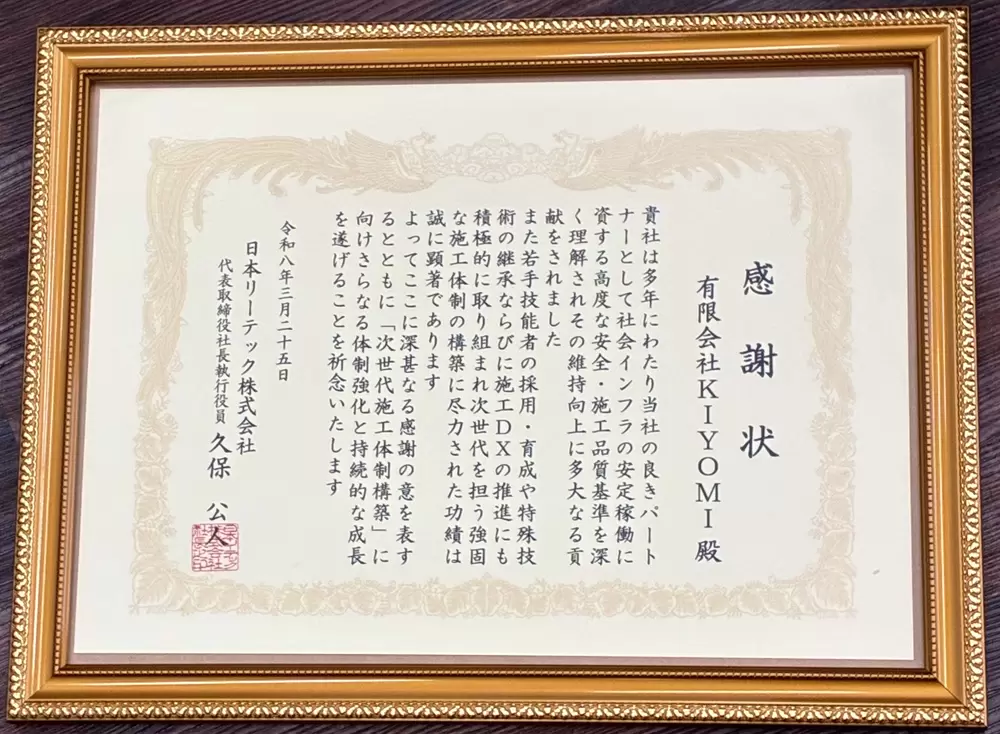 感謝状
有限会社KIYOMI殿
貴社は多年にわたり当社の良きパート
ナーとして社会インフラの安定稼働に
資する高度な安全・施工品質基準を深
く理解されその維持向上に多大なる貢
献をされました
また若手技能者の採用・育成や特殊技
術の継承ならびに施工DXの推進にも
積極的に取り組まれ次世代を担う強固
な施工体制の構築に尽力された功績は
誠に顕著であります
よってここに深甚なる感謝の意を表す
るとともに「次世代施工体制構築」に
向けさらなる体制強化と持続的な成長
を遂げることを祈念いたします
令和八年三月二十五日
日本リーテック株式会社
代表取締役社長執行役員 久保 公人